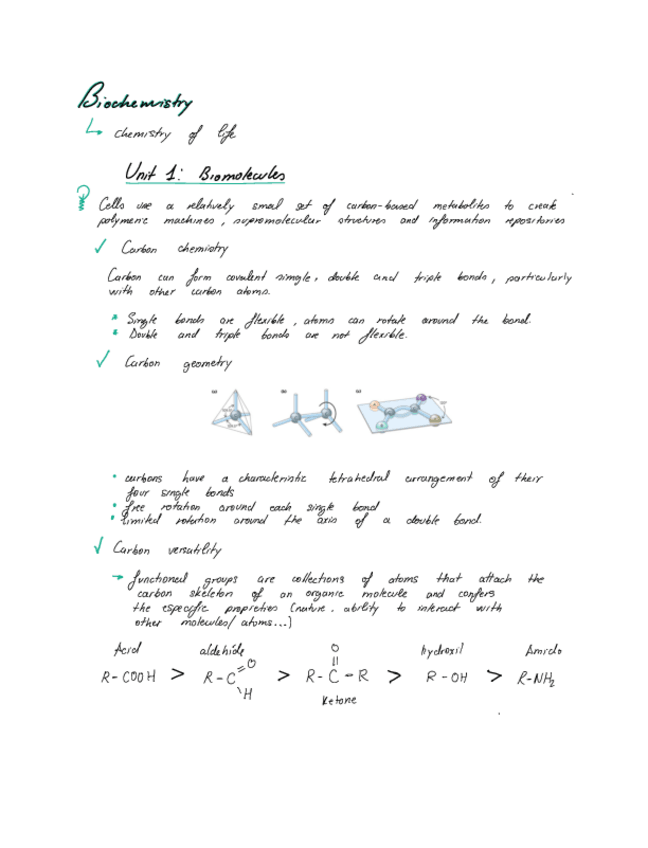 Biochemistry
↳ chemistry of life
Unit 1: Biomolecules
Cells use a relatively small set of carbon-based metabolites to create
polymeric machines, supromolecular structures and information repositories
✓ Carbon chemistry
Carbon can form covalent single, double and triple bonds, particularly
with other carbon atoms.
Single bonds are flexible, atoms can rotate around the bond.
Double and triple bonds are not flexible.
✓ Carbon geometry
(a) (b) (c)
• carbons have a characteristic tetrahedral arrangement of their
four single bonds
• free rotation around each single bond
• limited rotation around the axis of a double bond.
✓ Carbon versatility
→ functional groups are collections of atoms that attach the
carbon skeleton of an organic molecule and confers
the especific propreties (nature, ability to interact with
other molecules/atoms...)
Acid aldehide O hydroxil Amido
R-COOH > R-C=O > R-C-R > R-OH > R-NH₂
H
Ketone